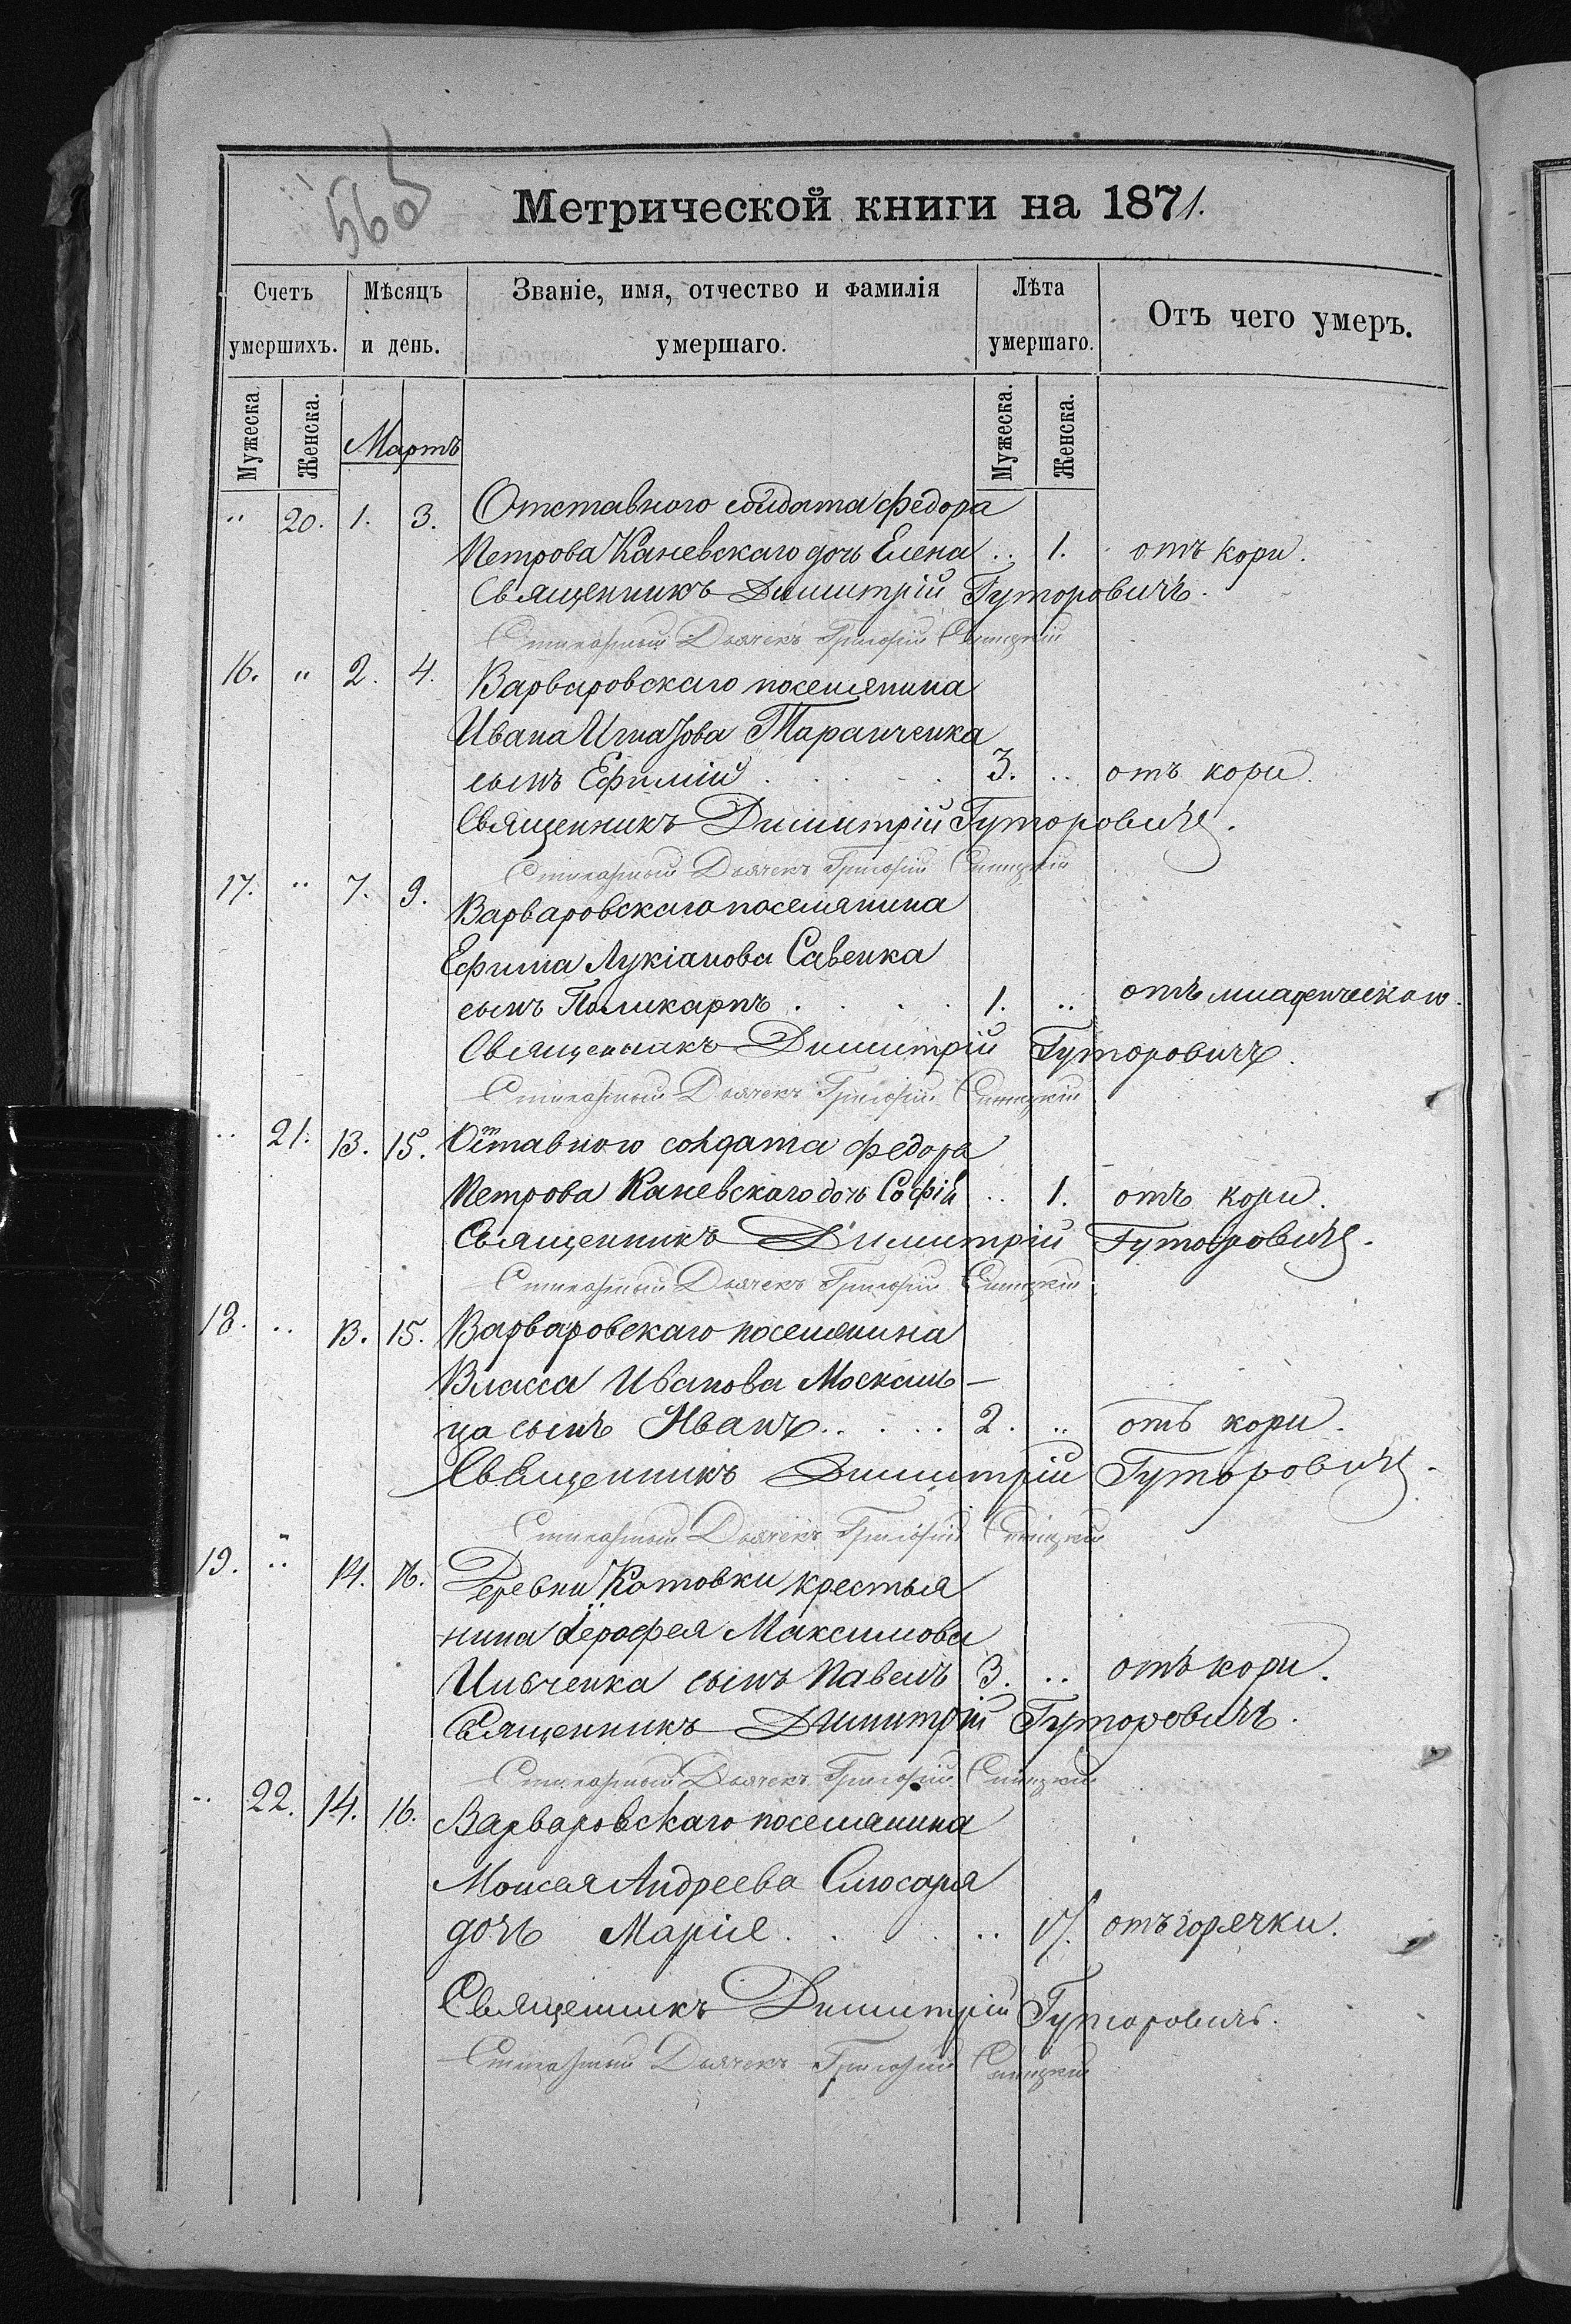 560
Метрической книги на 1871.
Счетъ умершихъ. Мѣсяцъ и день. Званіе, имя, отчество и фамилія умершаго. Лѣта умершаго. Отъ чего умеръ.
Мужеска. Женска. Мартъ Мужеска. Женска.
" 20. 1. 3. Отставного солдата Федора
Петрова Каневскаго дочь Елена .. 1. отъ кори.
Священникъ Димитрій Гуторовичъ.
Стихарный Дьячекъ Григорій
16. " 2. 4. Варваровскаго поселянина
Ивана Игнатова Таранченка
сынъ Ефимій . . . . 3. .. отъ кори.
Священникъ Димитрій Гуторовичъ.
Стихарный Дьячекъ Григорій
17. " 7. 9. Варваровскаго поселянина
Ефима Лукіанова Савенка
сынъ Поликарпъ . . . . 1. .. отъ младенческаго.
Священникъ Димитрій Гуторовичъ.
Стихарный Дьячекъ Григорій
.. 21. 13. 15. Отставного солдата Федора
Петрова Каневскаго дочь Софія .. 1. отъ кори.
Священникъ Димитрій Гуторовичъ.
Стихарный Дьячекъ Григорій
18. .. 13. 15. Варваровскаго поселянина
Власса Иванова Москаль-
ца сынъ Иванъ . . . . . 2. .. отъ кори.
Священникъ Димитрій Гуторовичъ.
Стихарный Дьячекъ Григорій
19. .. 14. 16. Деревни Катовки крестья
нина Іерофея Максимова
Ильченка сынъ Павелъ 3. .. отъ кори.
Священникъ Димитрій Гуторовичъ.
Стихарный Дьячекъ Григорій
.. 22. 14. 16. Варваровскаго поселянина
Моисея Андреева Слюсаря
дочь Марія . . . . .. 17. отъ горячки.
Священникъ Димитрій Гуторовичъ.
Стихарный Дьячекъ Григорій